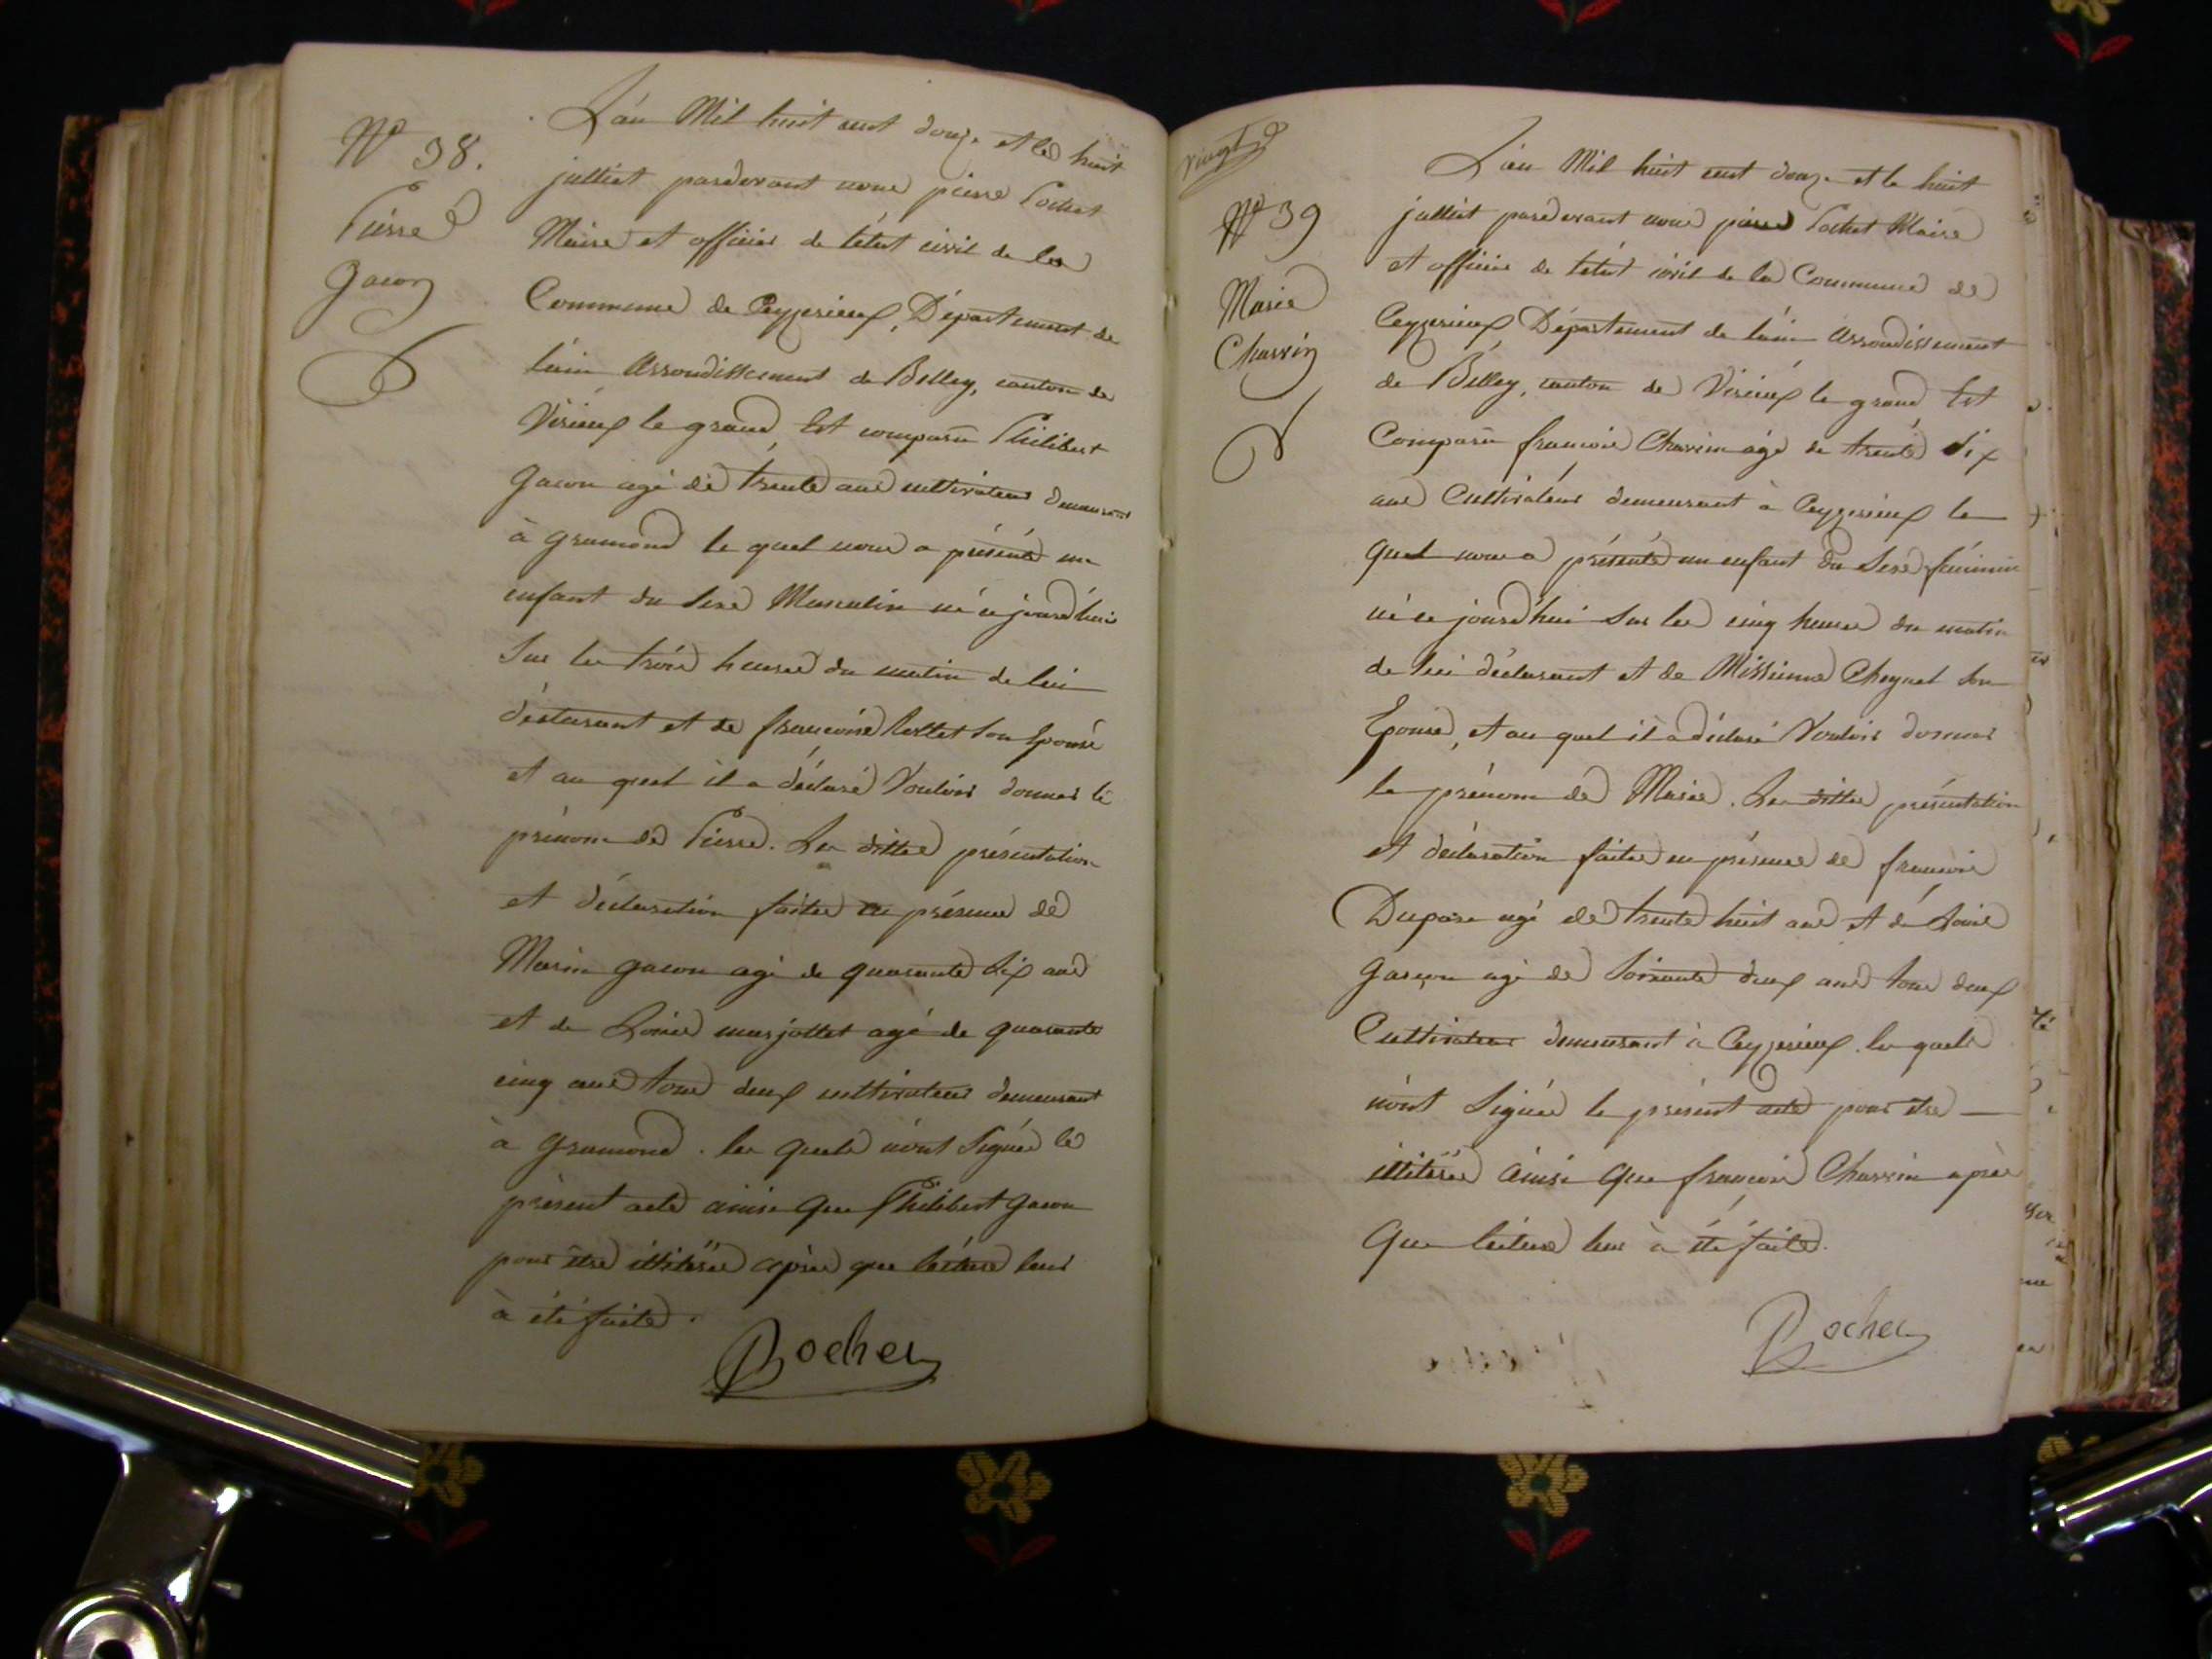 N° 38.
Pierre
Gacon
L'an Mil huit cent douze et le huit
julliet pardevant nous pierre Pochet
Maire et officier de l'état civil de la
Commune de Ceyzerieux, Département de
l'ain Arrondissement de Belley, canton de
Virieux le grand, Est comparu Philibert
gacon agé de trente ans cultivateur demeurant
à gramond le quel nous a présenté un
enfant du sexe Masculin né ce jourd'hui
sur les trois heures du matin de lui
déclarant et de francoise son Epouse
et au quel il a déclaré Vouloir donner le
prénom de Pierre. Les dittes présentation
et déclaration faites en présence de
Marin gacon agé de quarante six ans
et de Louis marjollet agé de quarante
cinq ans tous deux cultivateurs demeurant
à gramond. les quels n'ont signés le
présent acte ainsi que Philibert gacon
pour être illitérés après que lecture leur
à été faite.
vingt
N° 39
Marie
Charvin
L'an Mil huit cent douze et le huit
julliet pardevant nous pierre Pochet Maire
et officier de l'état civil de la Commune de
Ceyzerieux Département de l'ain Arrondissement
de Belley, canton de Virieux le grand, Est
Comparu francois Charvin agé de trente six
ans Cultivateur demeurant à Ceyzerieux le
quel nous a présenté un enfant du sexe féminin
né ce jourd'hui sur les cinq heures du matin
de lui déclarant et de son
Epouse, et au quel il a déclaré Vouloir donner
le prénom de Marie. Les dittes présentation
et déclaration faites en présence de francois
agé de trente huit ans et de Louis
agé de soixante deux ans tous deux
Cultivateurs demeurant à Ceyzerieux. les quels
n'ont signés le présent acte pour être
illitérés ainsi que francois Charvin après
que lecture leur à été faite.